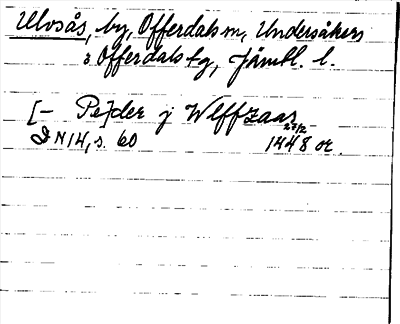 Ulvsås, by, Offerdals sn, Undersåkers
o Offerdals tg, Jämtl. l.
[– Pe]der j Wlffzaas
27/2
DN 14, s. 60 1448 or.